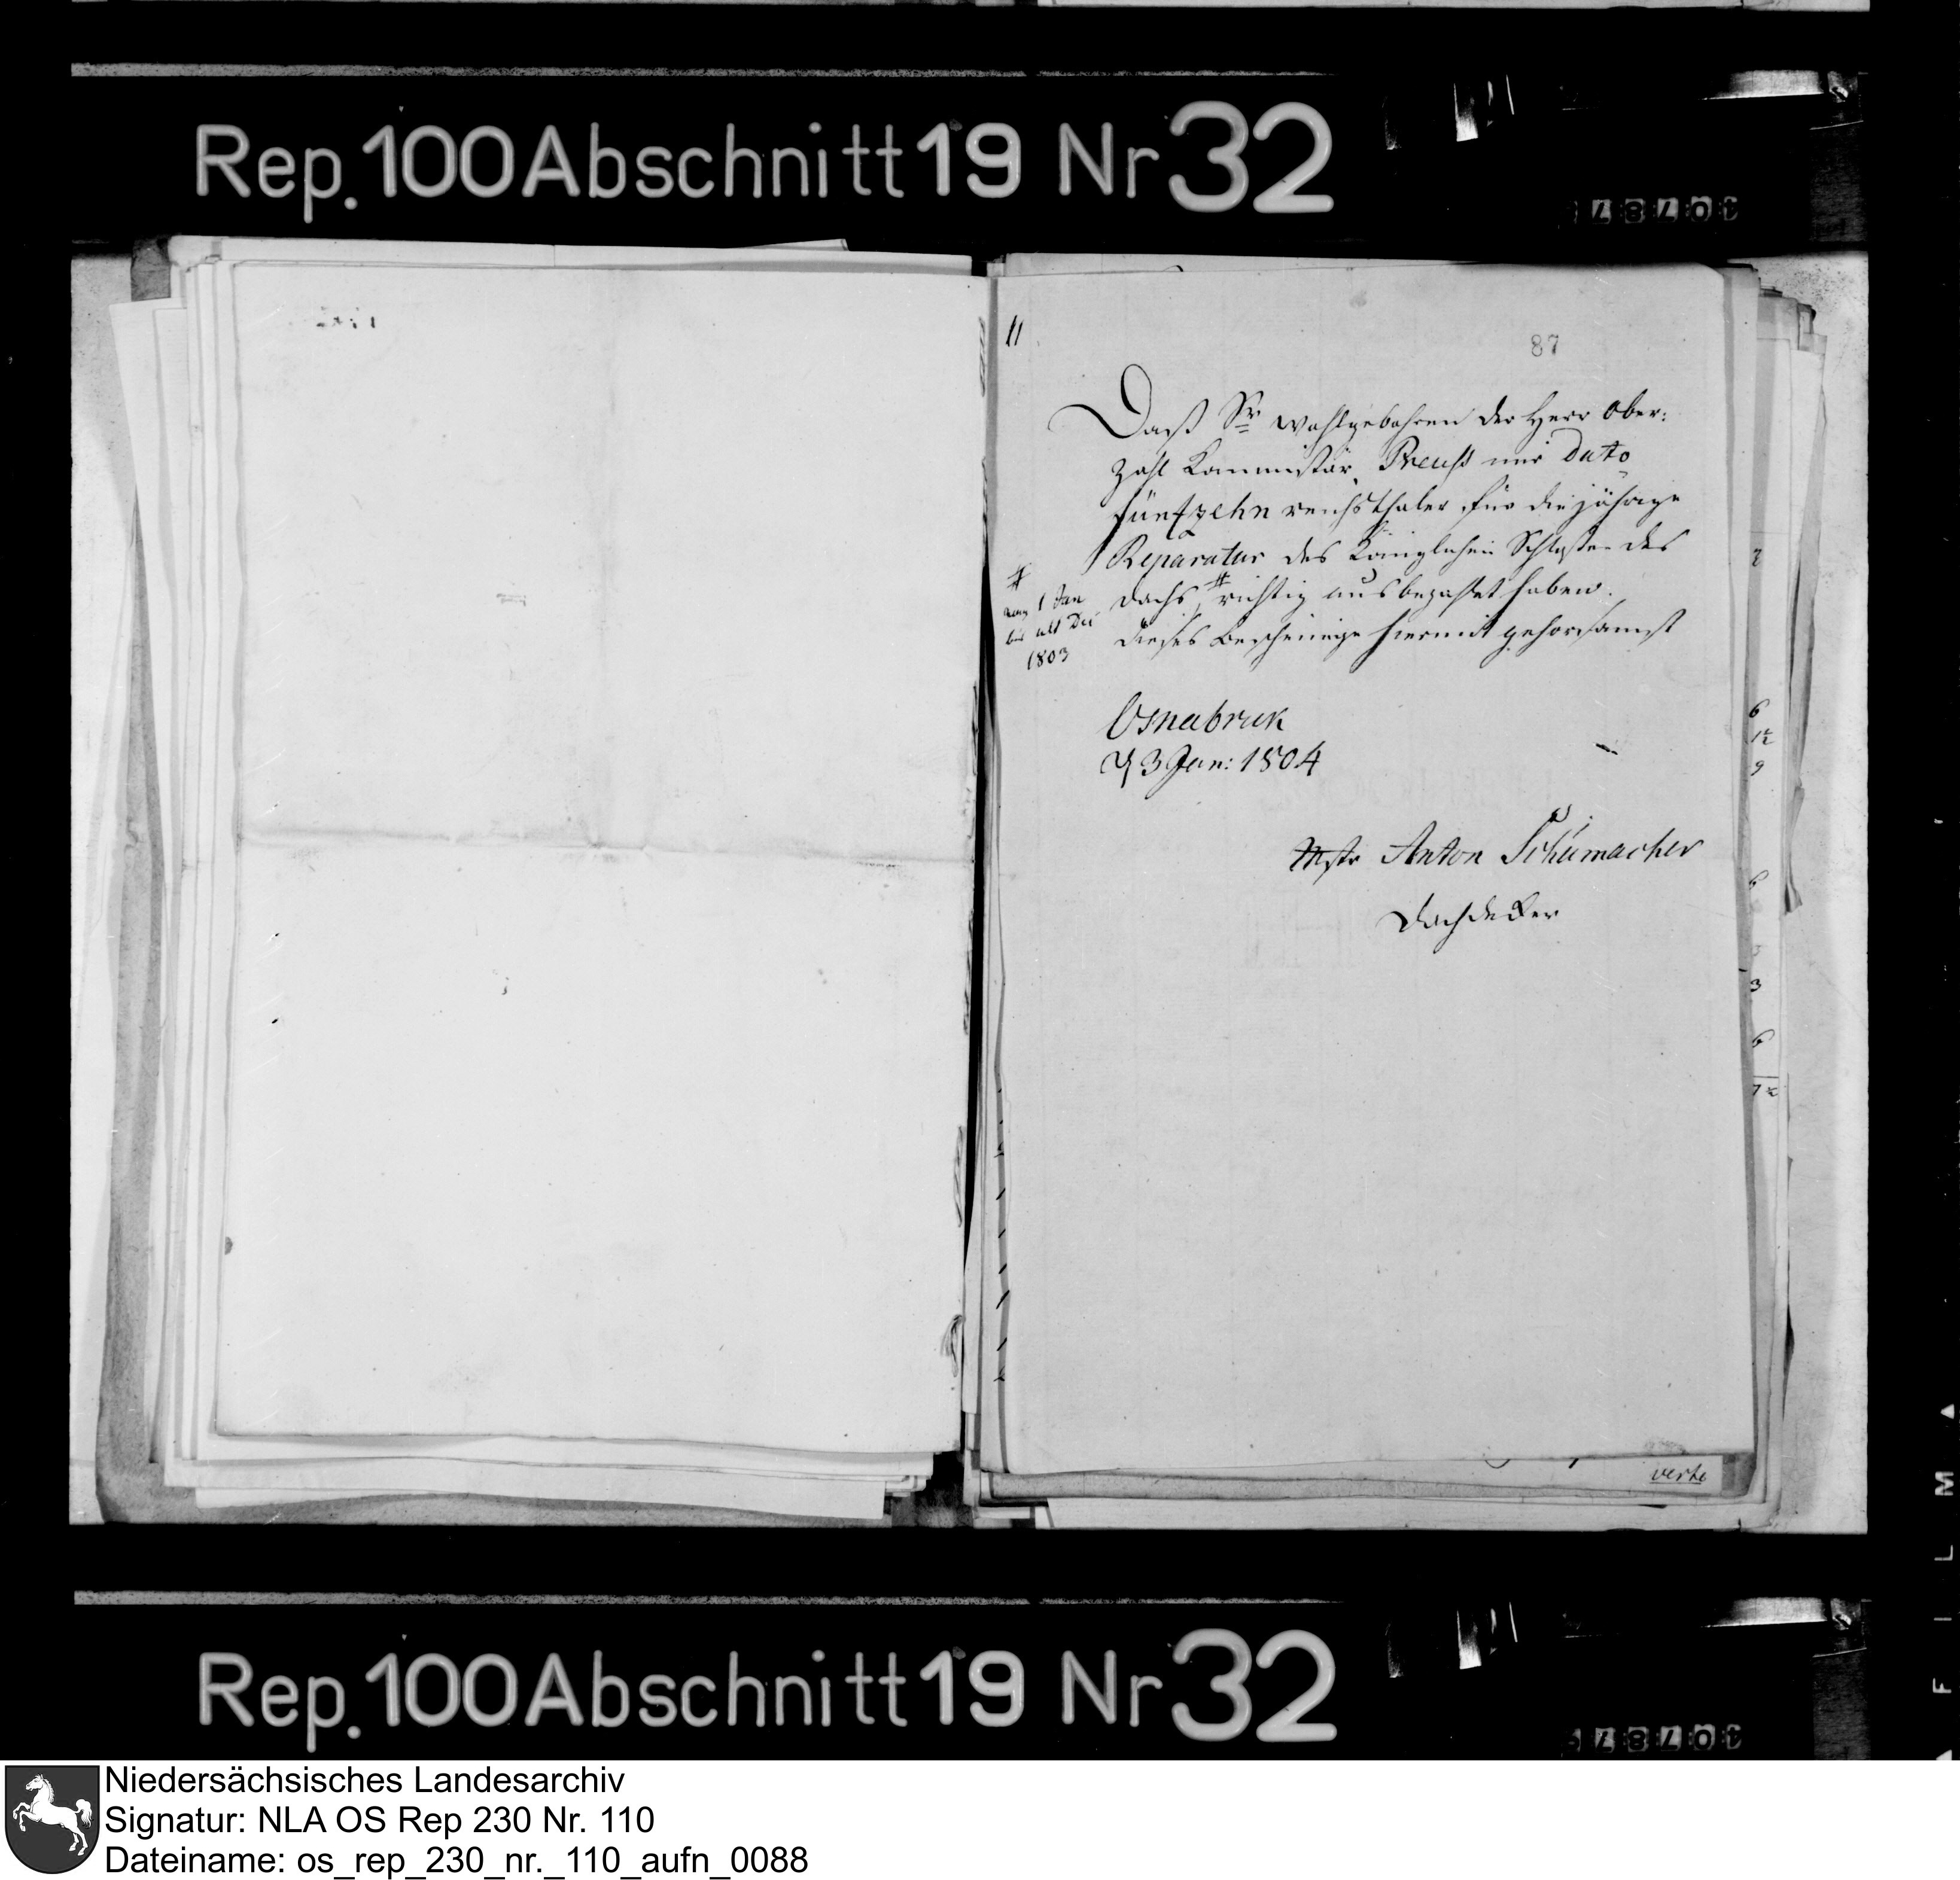 Rep. 100 Abschnitt 19 Nr 32
11
87
Daß Sr wohlgebohren der Herr Ober:
zahl Kommissär Preuß mir Dato
fünfzehn reichsthaler für die jährige
Reparatur des Königlichen Schlosses des
Dachs # richtig ausbezahlet haben.
dieses bescheinige hiermit gehorsamst
#
vom 1 Jan
bis ult Dec
1803
Osnabruk
d 3 Jan: 1804
Mstr Anton Schumacher
Dachdekker
2
6
1½
9
6
3
6
7½
verte
Rep. 100 Abschnitt 19 Nr 32
FILM
Niedersächsisches Landesarchiv
Signatur: NLA OS Rep 230 Nr. 110
Dateiname: os_rep_230_nr._110_aufn_0088